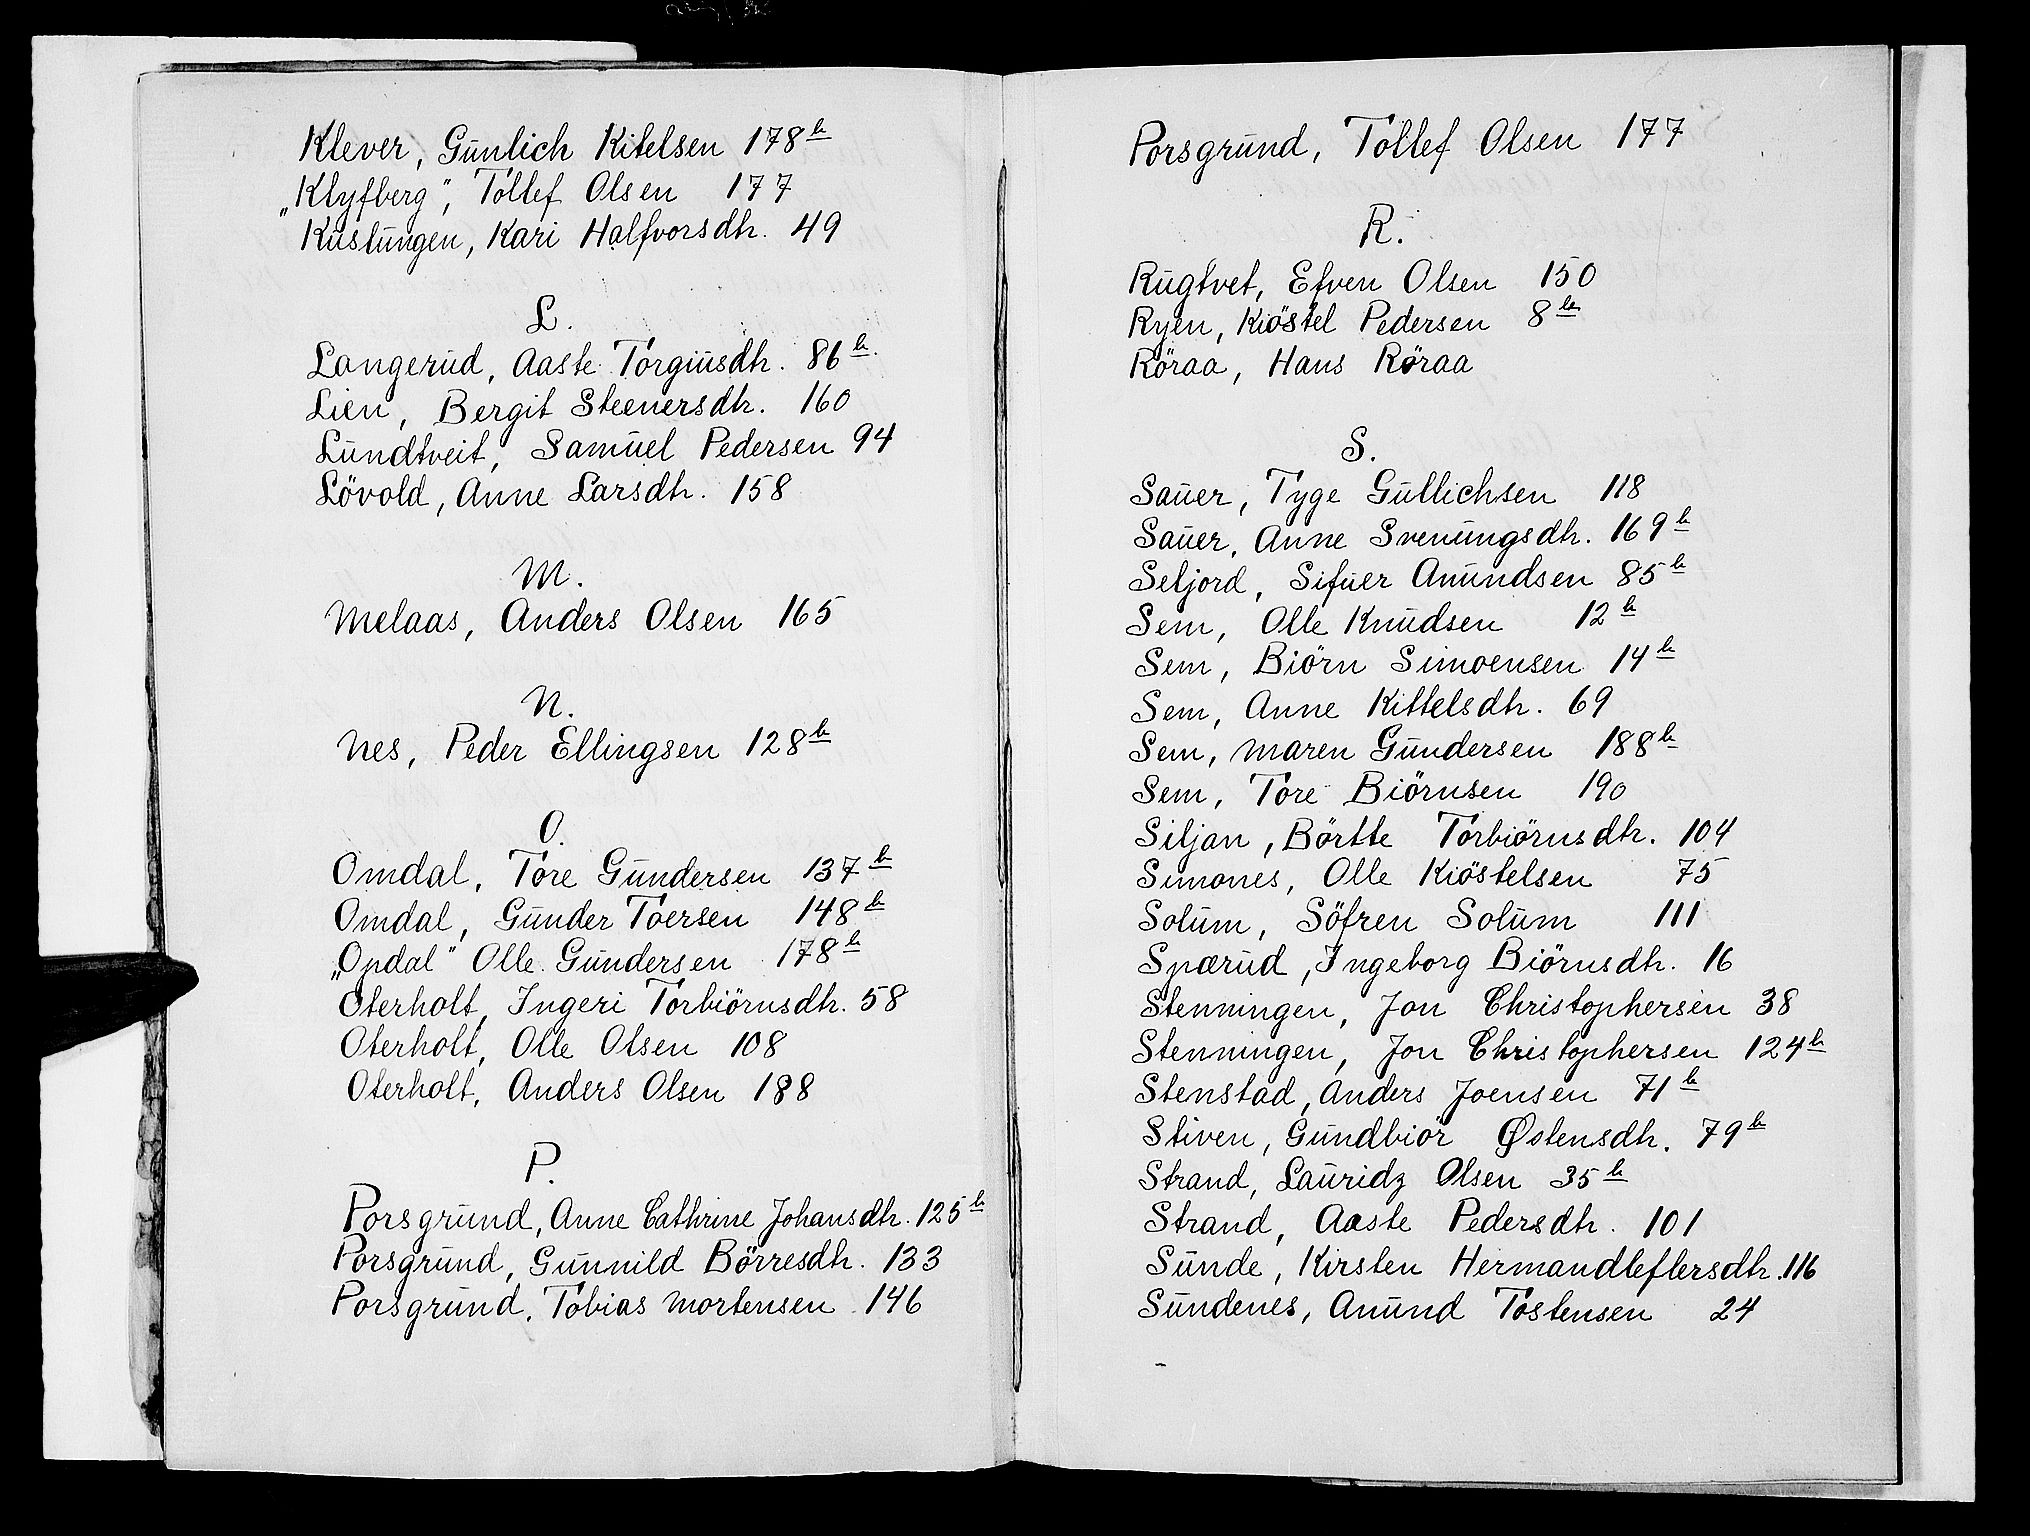 Klever, Gunlich Kitelsen 178b
„Klyfberg", Tollef Olsen 177
Kustungen, Kari Halfvorsdtr. 49
L.
Langerud, Aaste Torgiusdtr. 86b
Lien, Bergit Steenersdtr. 160
Lundtveit, Samuel Pedersen 94
Lövold, Anne Larsdtr. 158
M.
Melaas, Anders Olsen 165
N.
Nes, Peder Ellingsen 128b
O.
Omdal, Tore Gundersen 137b
Omdal, Gunder Toersen 148b
„Opdal" Olle Gundersen 178b
Oterholt, Ingeri Torbiörnsdtr. 58
Oterholt, Olle Olsen 108
Oterholt, Anders Olsen 188
P.
Porsgrund, Anne Cathrine Johansdtr. 125b
Porsgrund, Gunnild Börresdtr. 133
Porsgrund, Tobias Mortensen 146
Porsgrund, Tollef Olsen 177
R.
Rugtvet, Efven Olsen 150
Ryen, Kiöstel Pedersen 8b
Röraa, Hans Röraa
S.
Sauer, Tyge Gullichsen 118
Sauer, Anne Svenungsdtr. 169b
Seljord, Sifuer Anundsen 85b
Sem, Olle Knudsen 12b
Sem, Biörn Simoensen 14b
Sem, Anne Kittelsdtr. 69
Sem, Maren Gundersen 188b
Sem, Tore Biörnsen 190
Siljan, Börtte Torbiörnsdtr. 104
Simones, Olle Kiöstelsen 75
Solum, Söfren Solum 111
Spærud, Ingeborg Biörnsdtr. 16
Stenningen, Jon Christophersen 38
Stenningen, Jon Christophersen 124b
Stenstad, Anders Joensen 71b
Stiven, Gundbiör Østensdtr. 79b
Strand, Lauridz Olsen 35b
Strand, Aaste Pedersdtr. 101
Sunde, Kirsten Hermandleflersdtr. 116
Sundenes, Anund Tostensen 24